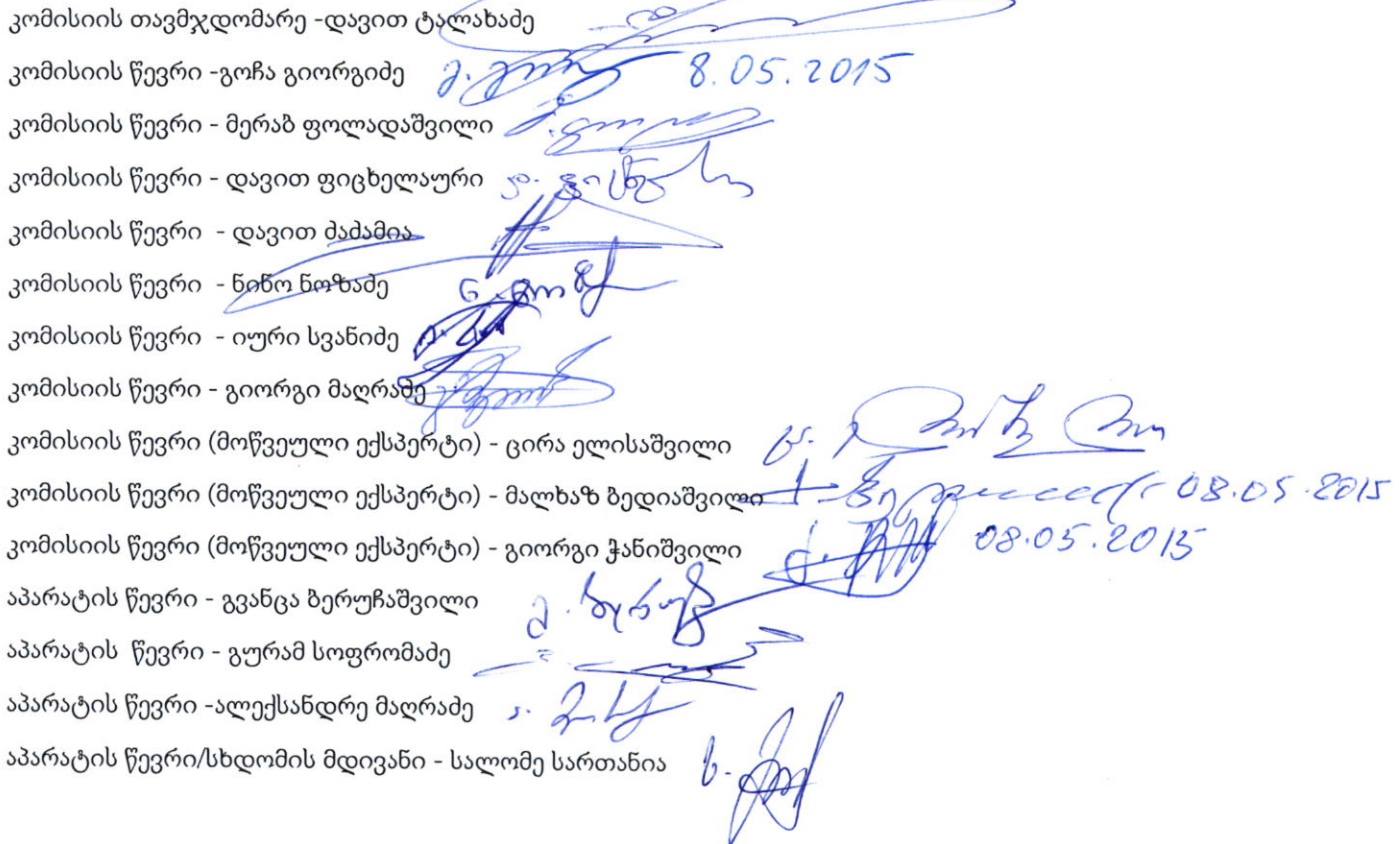 კომისიის თავმჯდომარე -დავით ტალახაძე
კომისიის წევრი -გოჩა გიორგიძე 8.05.2015
კომისიის წევრი - მერაბ ფოლადაშვილი
კომისიის წევრი - დავით ფიცხელაური
კომისიის წევრი - დავით ძაძამია
კომისიის წევრი - ნინო ნოზაძე
კომისიის წევრი - იური სვანიძე
კომისიის წევრი - გიორგი მაღრაძე
კომისიის წევრი (მოწვეული ექსპერტი) - ცირა ელისაშვილი
კომისიის წევრი (მოწვეული ექსპერტი) - მალხაზ ბედიაშვილი 08.05.2015
კომისიის წევრი (მოწვეული ექსპერტი) - გიორგი ჭანიშვილი 08.05.2015
აპარატის წევრი - გვანცა ბერუჩაშვილი
აპარატის წევრი - გურამ სოფრომაძე
აპარატის წევრი -ალექსანდრე მაღრაძე
აპარატის წევრი/სხდომის მდივანი - სალომე სართანია